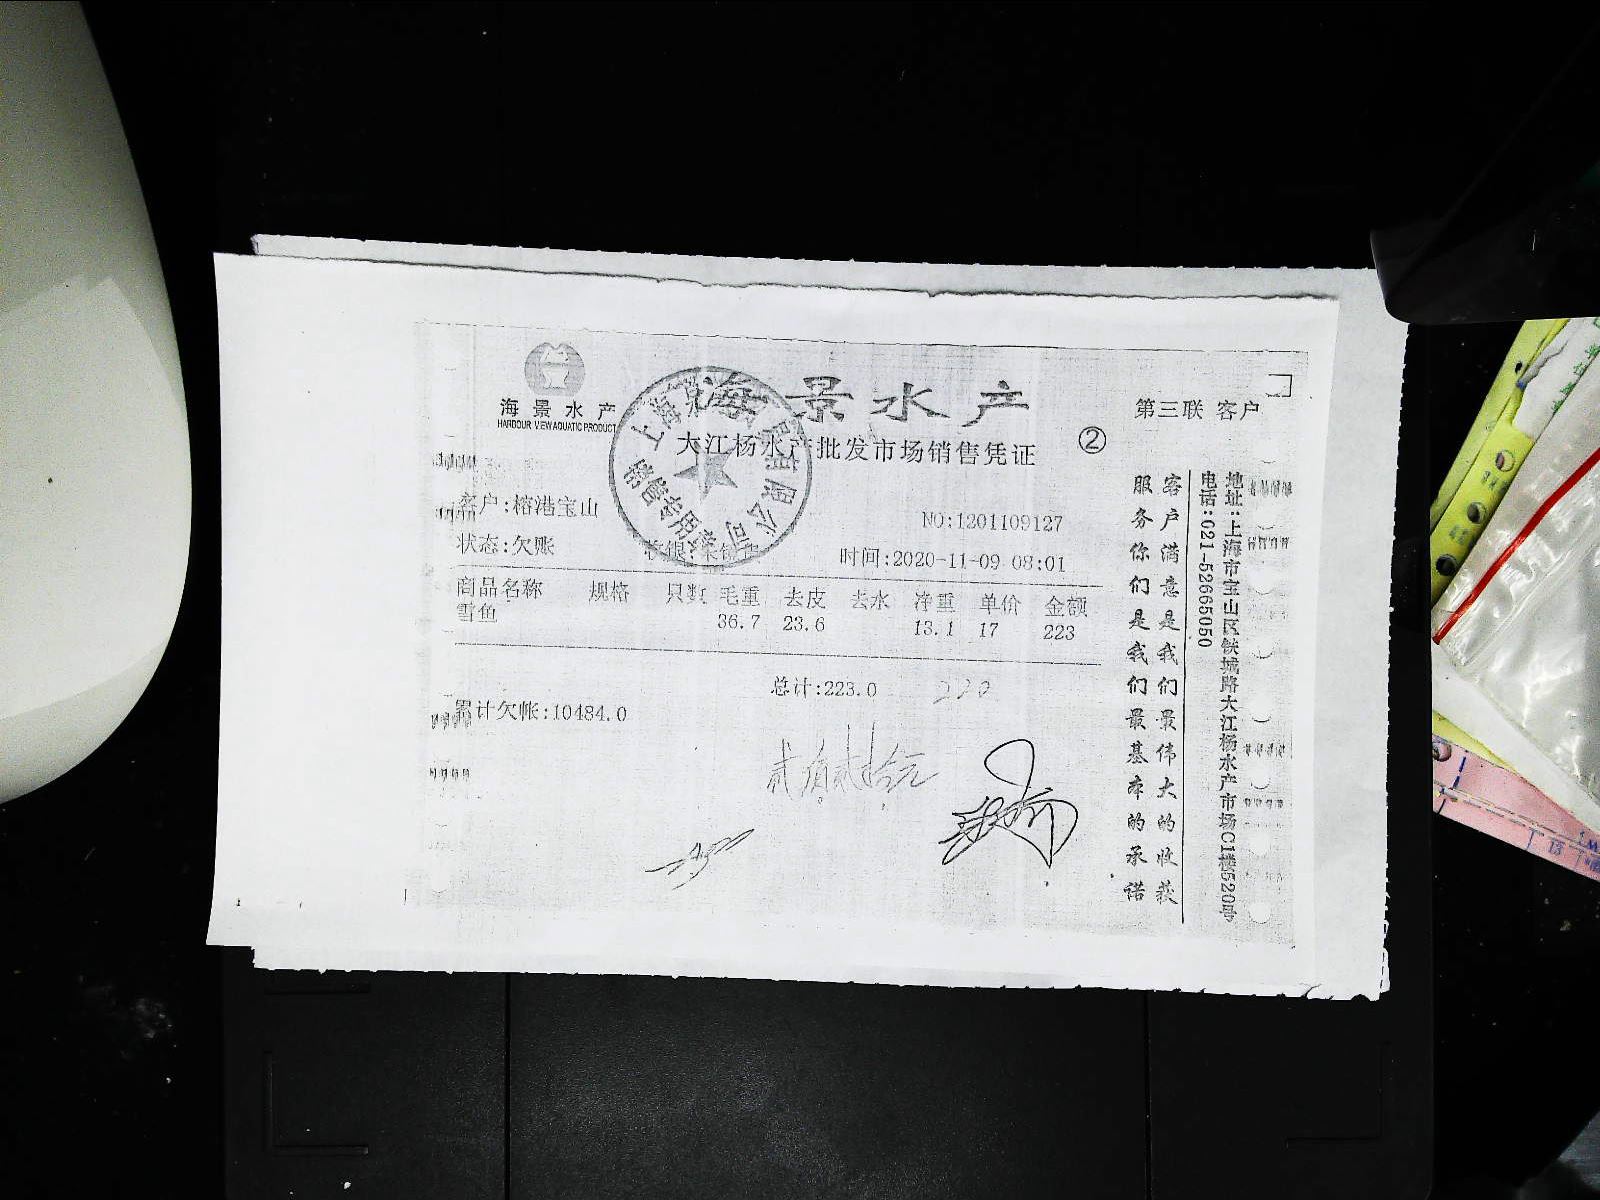 海景水产
HARBOUR VIEW AQUATIC PRODUCT
海景水产
第三联 客户
大江杨水产批发市场销售凭证
②
上海
有限公司
销售专用章
客户:榕港宝山
NO:1201109127
状态:欠账
时间:2020-11-09 08:01
商品名称 规格 只数 毛重 去皮 去水 净重 单价 金额
雪鱼 36.7 23.6 13.1 17 223
总计:223.0 220
累计欠帐:10484.0
贰佰贰拾元
客户满意是我们最伟大的收获
服务你们是我们最基本的承诺
地址:上海市宝山区铁城路大江杨水产市场C1楼520号
电话:021-52665050
13